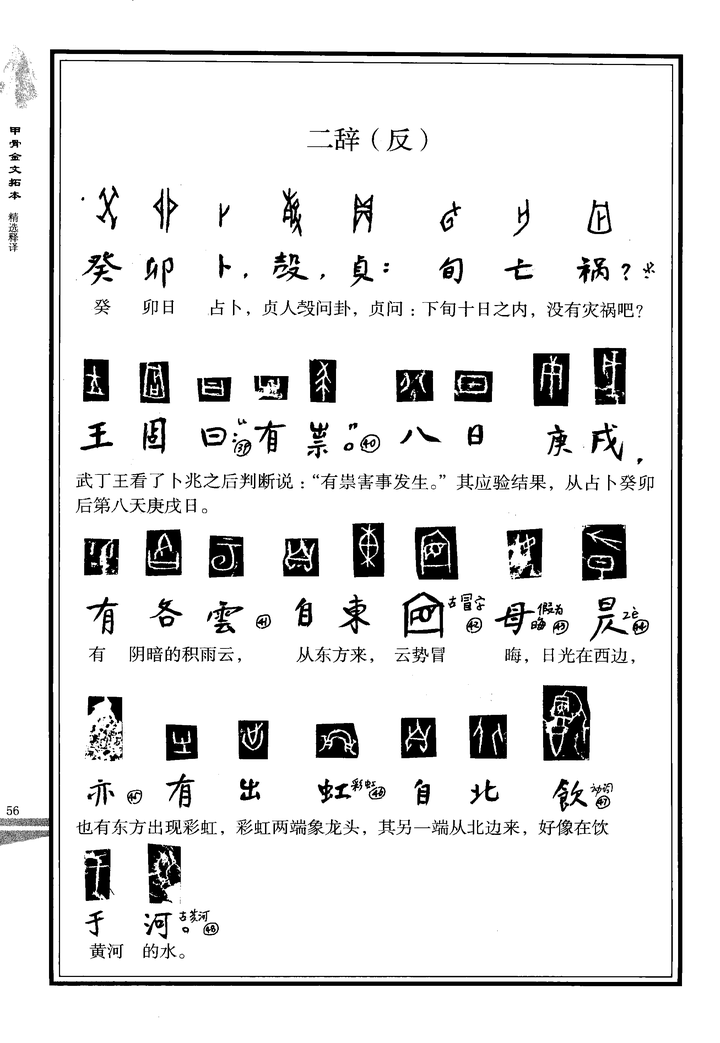 甲骨金文拓本 精选释译
二辞（反）
癸 卯 卜，㱿，贞： 旬 亡 祸？
癸 卯日 占卜，贞人㱿问卦，贞问：下旬十日之内，没有灾祸吧？
王 固 曰：㊴“有 祟”。㊵ 八 日 庚 戌，
武丁王看了卜兆之后判断说：“有祟害事发生。”其应验结果，从占卜癸卯
后第八天庚戌日。
有 各 雲㊶ 自 東 古冒字㊷ 母假为晦㊸ 昃㊹
有 阴暗的积雨云， 从东方来， 云势冒 晦，日光在西边，
亦㊺ 有 出 虹彩虹㊻ 自 北 飲动词㊼
也有东方出现彩虹，彩虹两端象龙头，其另一端从北边来，好像在饮
于 河古黄河。㊽
黄河 的水。
56